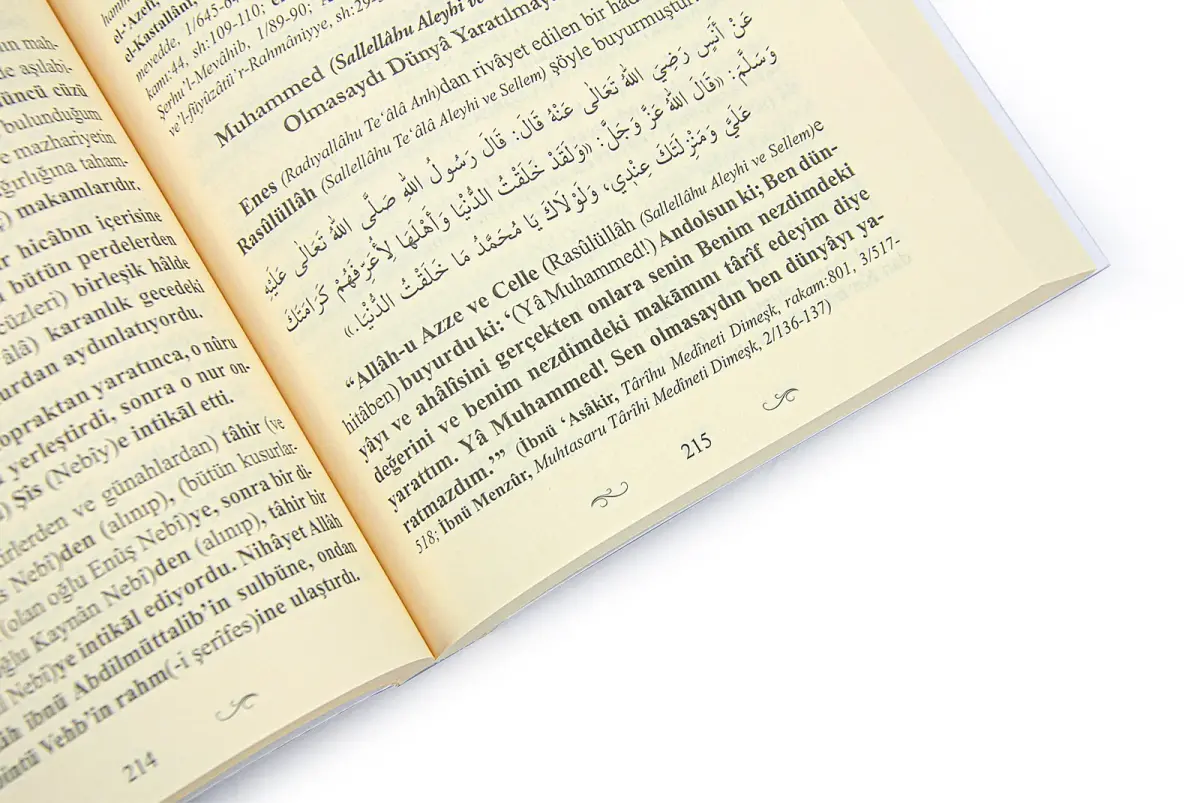 ının mah-
de aşılabi-
üncü cüzü
bulunduğum
e mazhariyetin
ğırlığına taham-
) makamlarıdır.
r hicâbın içerisine
bütün perdelerden
cüzleri) birleşik hâlde
âlâ) karanlık gecedeki
urdan aydınlatıyordu.
opraktan yaratınca, o nûru
yerleştirdi, sonra o nur on-
) Şîs (Nebîy)e intikâl etti.
irlerden ve günahlardan) tâhir (ve
s Nebî)den (alınıp), (bütün kusurlar-
(olan oğlu Enûş Nebî)ye, sonra bir di-
oğlu Kaynân Nebî)den (alınıp), tâhir bir
Nebî)ye intikâl ediyordu. Nihâyet Allâh
âh ibnü Abdilmüttalib'in sulbüne, ondan
bintü Vehb'in rahm(-i şerîfes)ine ulaştırdı.
214
el-'Azefî,
el-Kastallânî,
mevedde, 1/645-64
kamı:44, sh:109-110;
Şerhu'l-Mevâhib, 1/89-90;
ve'l-füyûzâti'r-Rahmâniyye, sh:29-
Muhammed (Sallellâhu Aleyhi ve
Olmasaydı Dünyâ Yaratılmaya
Enes (Radıyallâhu Te'âlâ Anh)dan rivâyet edilen bir had
Rasûlüllâh (Sallellâhu Te'âlâ Aleyhi ve Sellem) şöyle buyurmuştur
عَنْ أَنَسٍ رَضِيَ اللّٰهُ تَعَالَى عَنْهُ قَالَ: قَالَ رَسُولُ اللّٰهِ صَلَّى اللّٰهُ تَعَالَى عَلَيْهِ
وَسَلَّمَ: «قَالَ اللّٰهُ عَزَّ وَجَلَّ: «وَلَقَدْ خَلَقْتُ الدُّنْيَا وَأَهْلَهَا لِأُعَرِّفَهُمْ كَرَامَتَكَ
عَلَيَّ وَمَنْزِلَتَكَ عِنْدِي، وَلَوْلَاكَ يَا مُحَمَّدُ مَا خَلَقْتُ الدُّنْيَا.»
“Allâh-u Azze ve Celle (Rasûlüllâh (Sallellâhu Aleyhi ve Sellem)e
hitâben) buyurdu ki: ‘(Yâ Muhammed!) Andolsun ki; Ben dün-
yâyı ve ahâlîsini gerçekten onlara senin Benim nezdimdeki
değerini ve benim nezdimdeki makâmını târîf edeyim diye
yarattım. Yâ Muhammed! Sen olmasaydın ben dünyâyı ya-
ratmazdım.’” (İbnü ‘Asâkir, Târîhu Medîneti Dimeşk, rakam:801, 3/517-
518; İbnü Menzûr, Muhtasaru Târîhi Medîneti Dimeşk, 2/136-137)
215